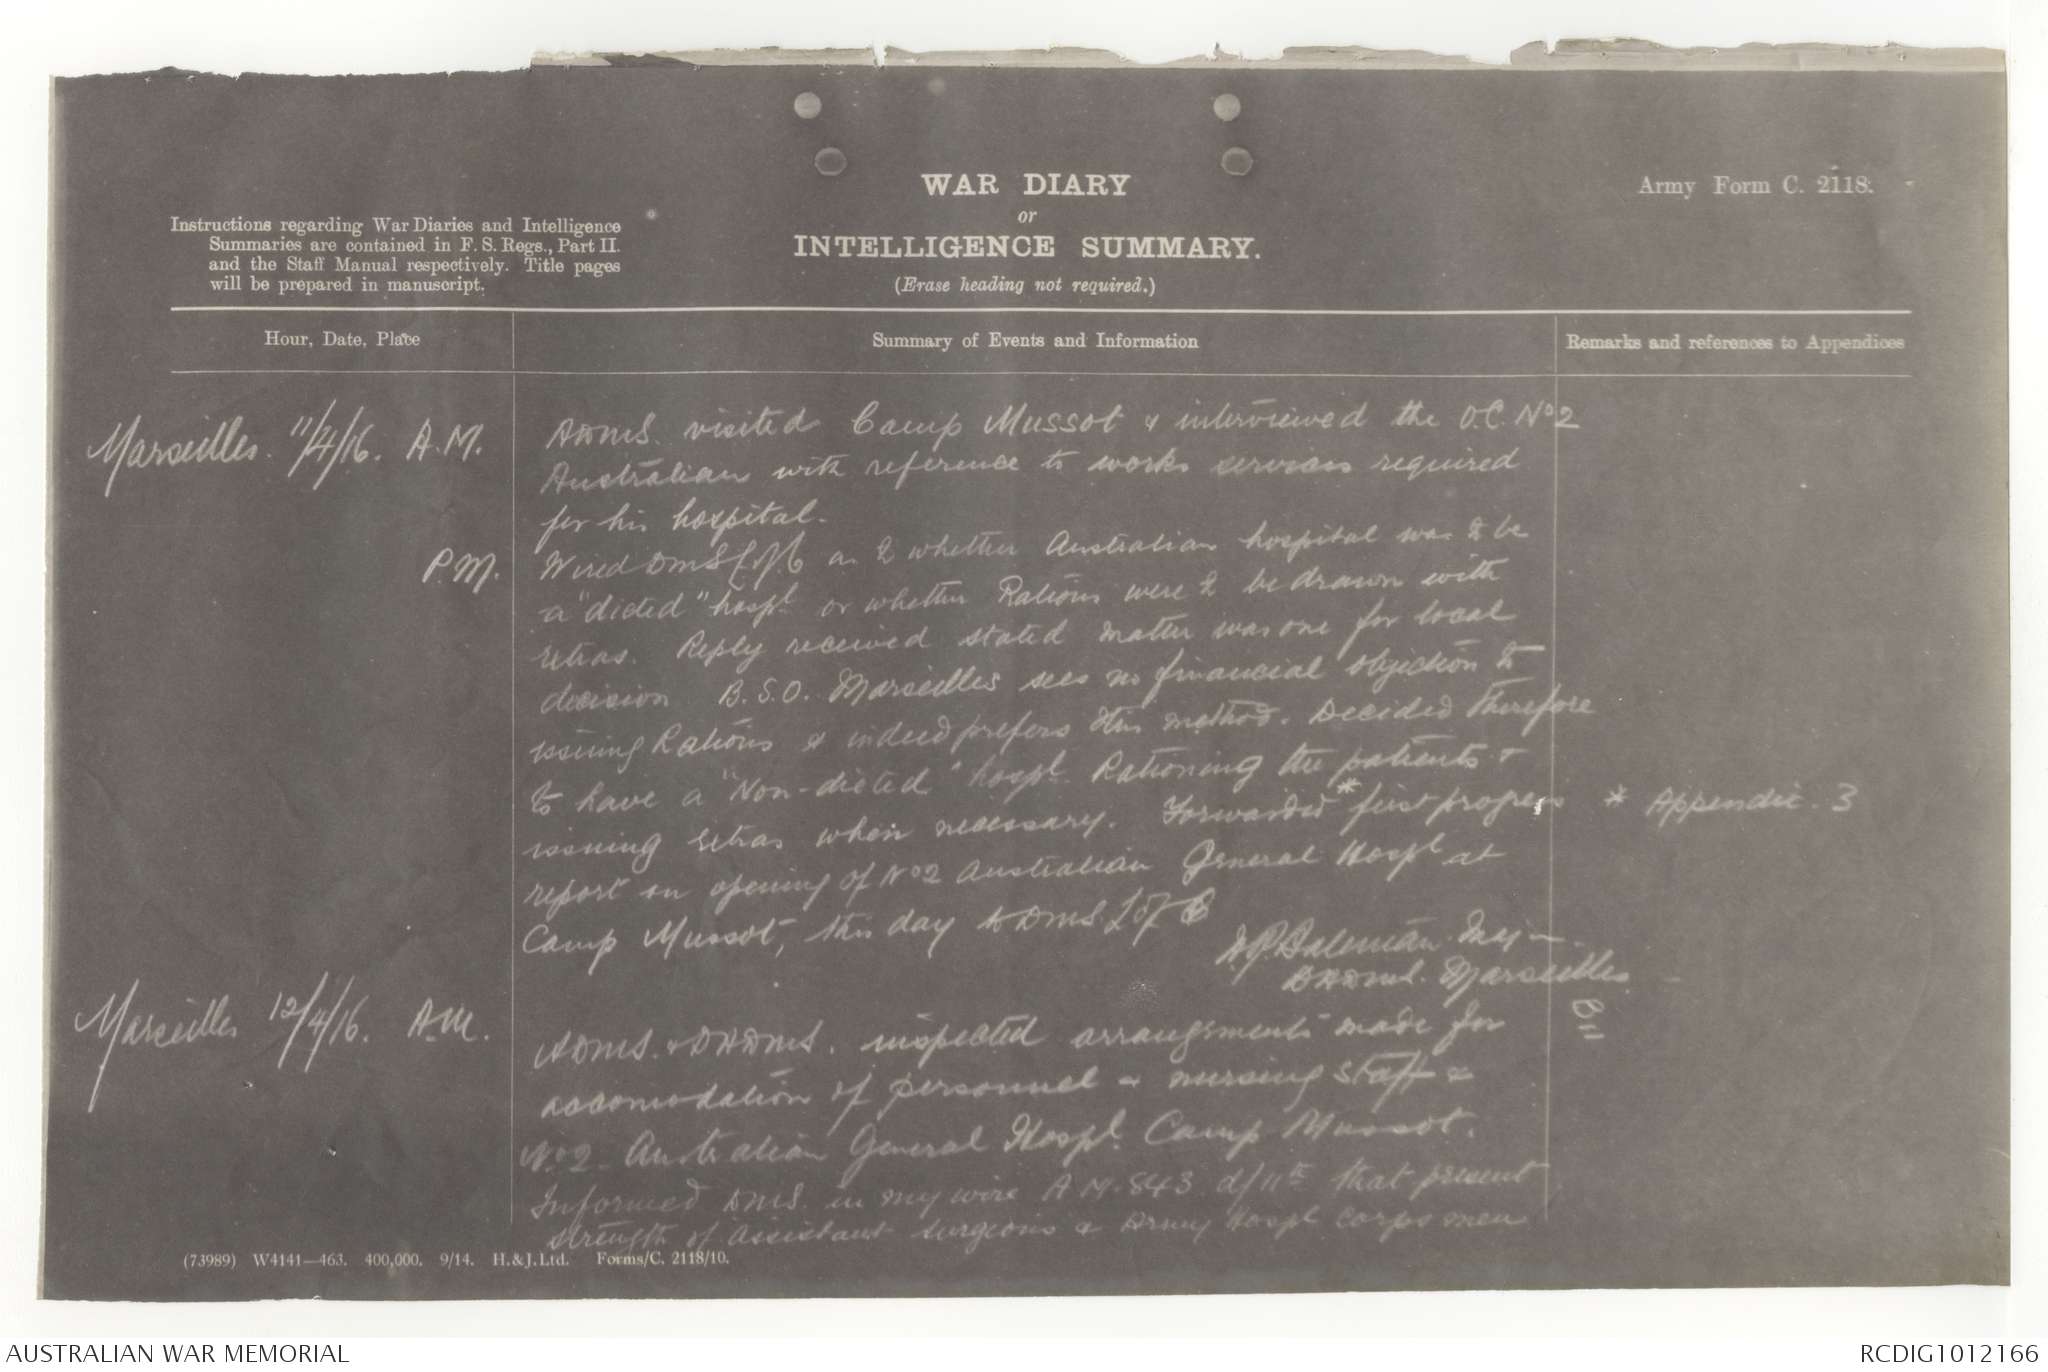 WAR DIARY
or
INTELLIGENCE SUMMARY.
(Erase heading not required.)
Army Form C. 2118.
Instructions regarding War Diaries and Intelligence
Summaries are contained in F. S. Regs., Part II.
and the Staff Manual respectively. Title pages
will be prepared in manuscript.
Hour, Date, Place
Summary of Events and Information
Remarks and references to Appendices
Marseilles. 11/4/16. A.M.
ADMS. visited Camp Mussot & interviewed the O.C. No 2
Australian with reference to works services required
for his hospital.
P.M.
Wired DMS L of C as to whether Australian hospital was to be
a "dieted" hospl. or whether Rations were to be drawn with
extras. Reply received stated matter was one for local
decision B.S.O. Marseilles sees no financial objection to
issuing Rations & indeed prefers this method. Decided therefore
to have a "Non-dieted" hospl. Rationing the patients &
issuing extras when necessary. Forwarded * first progress
* Appendix. 3
report on opening of No 2 Australian General Hospl at
Camp Mussot, this day to DMS. L of C
Bateman Maj
DADMS. Marseilles.
Marseilles 12/4/16. A.M.
ADMS. & DADMS. inspected arrangements made for
accomodation of personnel & nursing staff &
No 2 Australian General Hospl. Camp Mussot.
Informed DMS. in my wire A.M. 843 d/11th that present
strength of assistant surgeons & Army Hospl Corps men
(73989) W4141—463. 400,000. 9/14. H.&J.Ltd. Forms/C. 2118/10.
AUSTRALIAN WAR MEMORIAL
RCDIG1012166